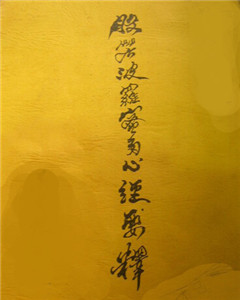 般若波羅蜜多心經要釋